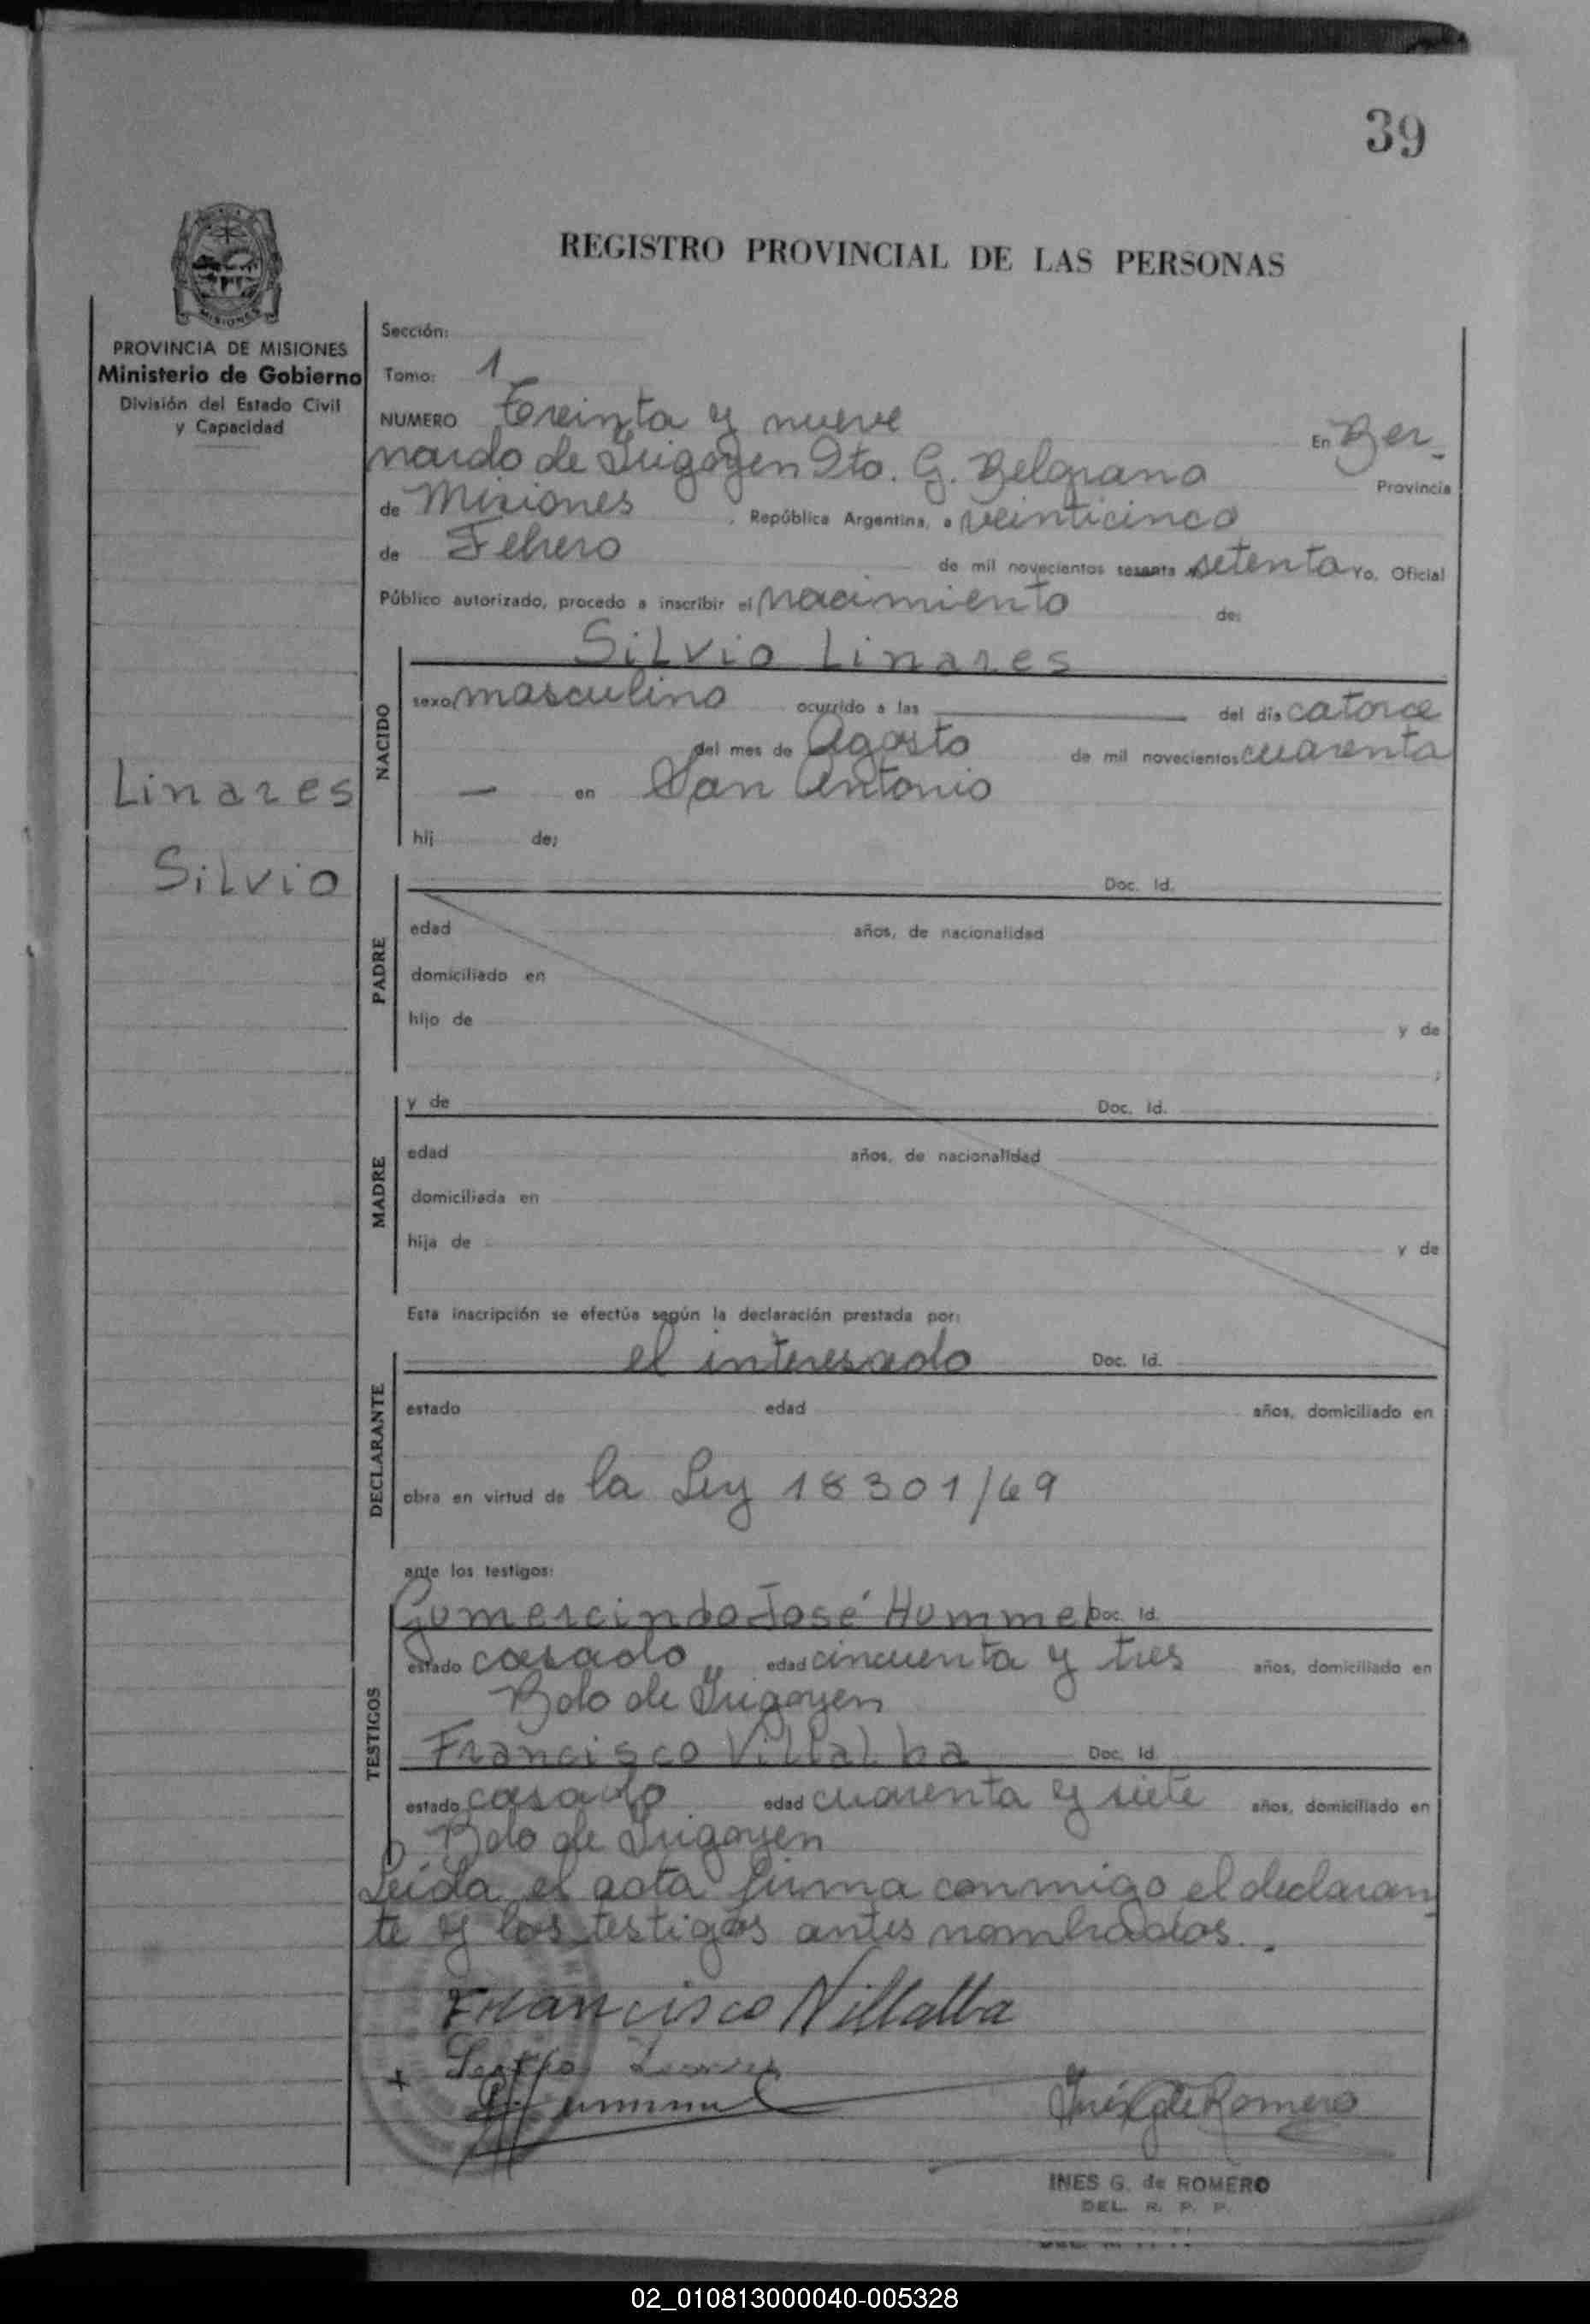 39
REGISTRO PROVINCIAL DE LAS PERSONAS
MISIONES
PROVINCIA DE MISIONES
Ministerio de Gobierno
División del Estado Civil
y Capacidad
Linares
Silvio
Sección:
Tomo: 1
NUMERO Treinta y nueve En Ber-
nardo de Irigoyen Dto. G. Belgrano Provincia
de Misiones , República Argentina, a veinticinco
de Febrero de mil novecientos sesenta setenta Yo, Oficial
Público autorizado, procedo a inscribir el nacimiento de:
NACIDO
Silvio Linares
sexo masculino ocurrido a las del día catorce
del mes de Agosto de mil novecientos cuarenta
— en San Antonio
hij de:
PADRE
Doc. Id.
edad años, de nacionalidad
domiciliado en
hijo de y de
;
MADRE
y de Doc. Id.
edad años, de nacionalidad
domiciliada en
hija de y de
Esta inscripción se efectúa según la declaración prestada por:
DECLARANTE
el interesado Doc. Id.
estado edad años, domiciliado en
obra en virtud de la Ley 18301/69
ante los testigos:
TESTIGOS
Gumercindo José Hummel Doc. Id.
estado casado edad cincuenta y tres años, domiciliado en
Bdo de Irigoyen
Francisco Villalba Doc. Id.
estado casado edad cuarenta y siete años, domiciliado en
Bdo de Irigoyen
Leida el acta firma conmigo el declaran
te y los testigos antes nombrados.
Francisco Villalba
Inés G de Romero
INES G. de ROMERO
DEL. R. P. P.
02_010813000040-005328